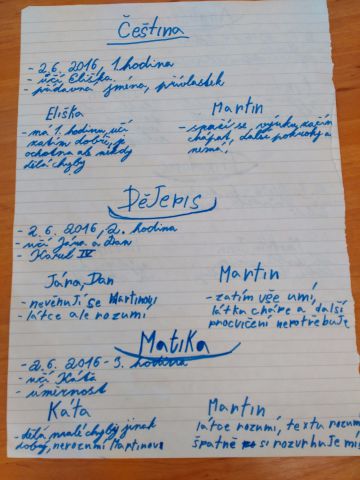 Čeština
- 2.6. 2016, 1. hodina
- učí Eliška.
- přídavná jména, přívlastek
Eliška
- má 1. hodinu, učí
zatím dobře, je
ochotna ale někdy
dělá chyby
Martin
- spaží se, výuku začín
chápat, další pokroky a
nemá!
DěJepis
- 2. 6. 2016, 2. hodina
- učí Jára a Dan
- Karel IV
Jára, Dan
- nevěnují se Martinovi
- látce ale rozumí
Martin
- zatím vše umí,
látku cháre a další
procvičení nepotřebuje
Matika
- 2. 6. 2016 - 3. hodina
- učí Káťa
- úměrnost
Káťa
- dělá malé chyby jinak
dobrý, nerozumí Martinovi
Martin
látce rozumí, textu rozumí
špatně si rozvrhuje mí